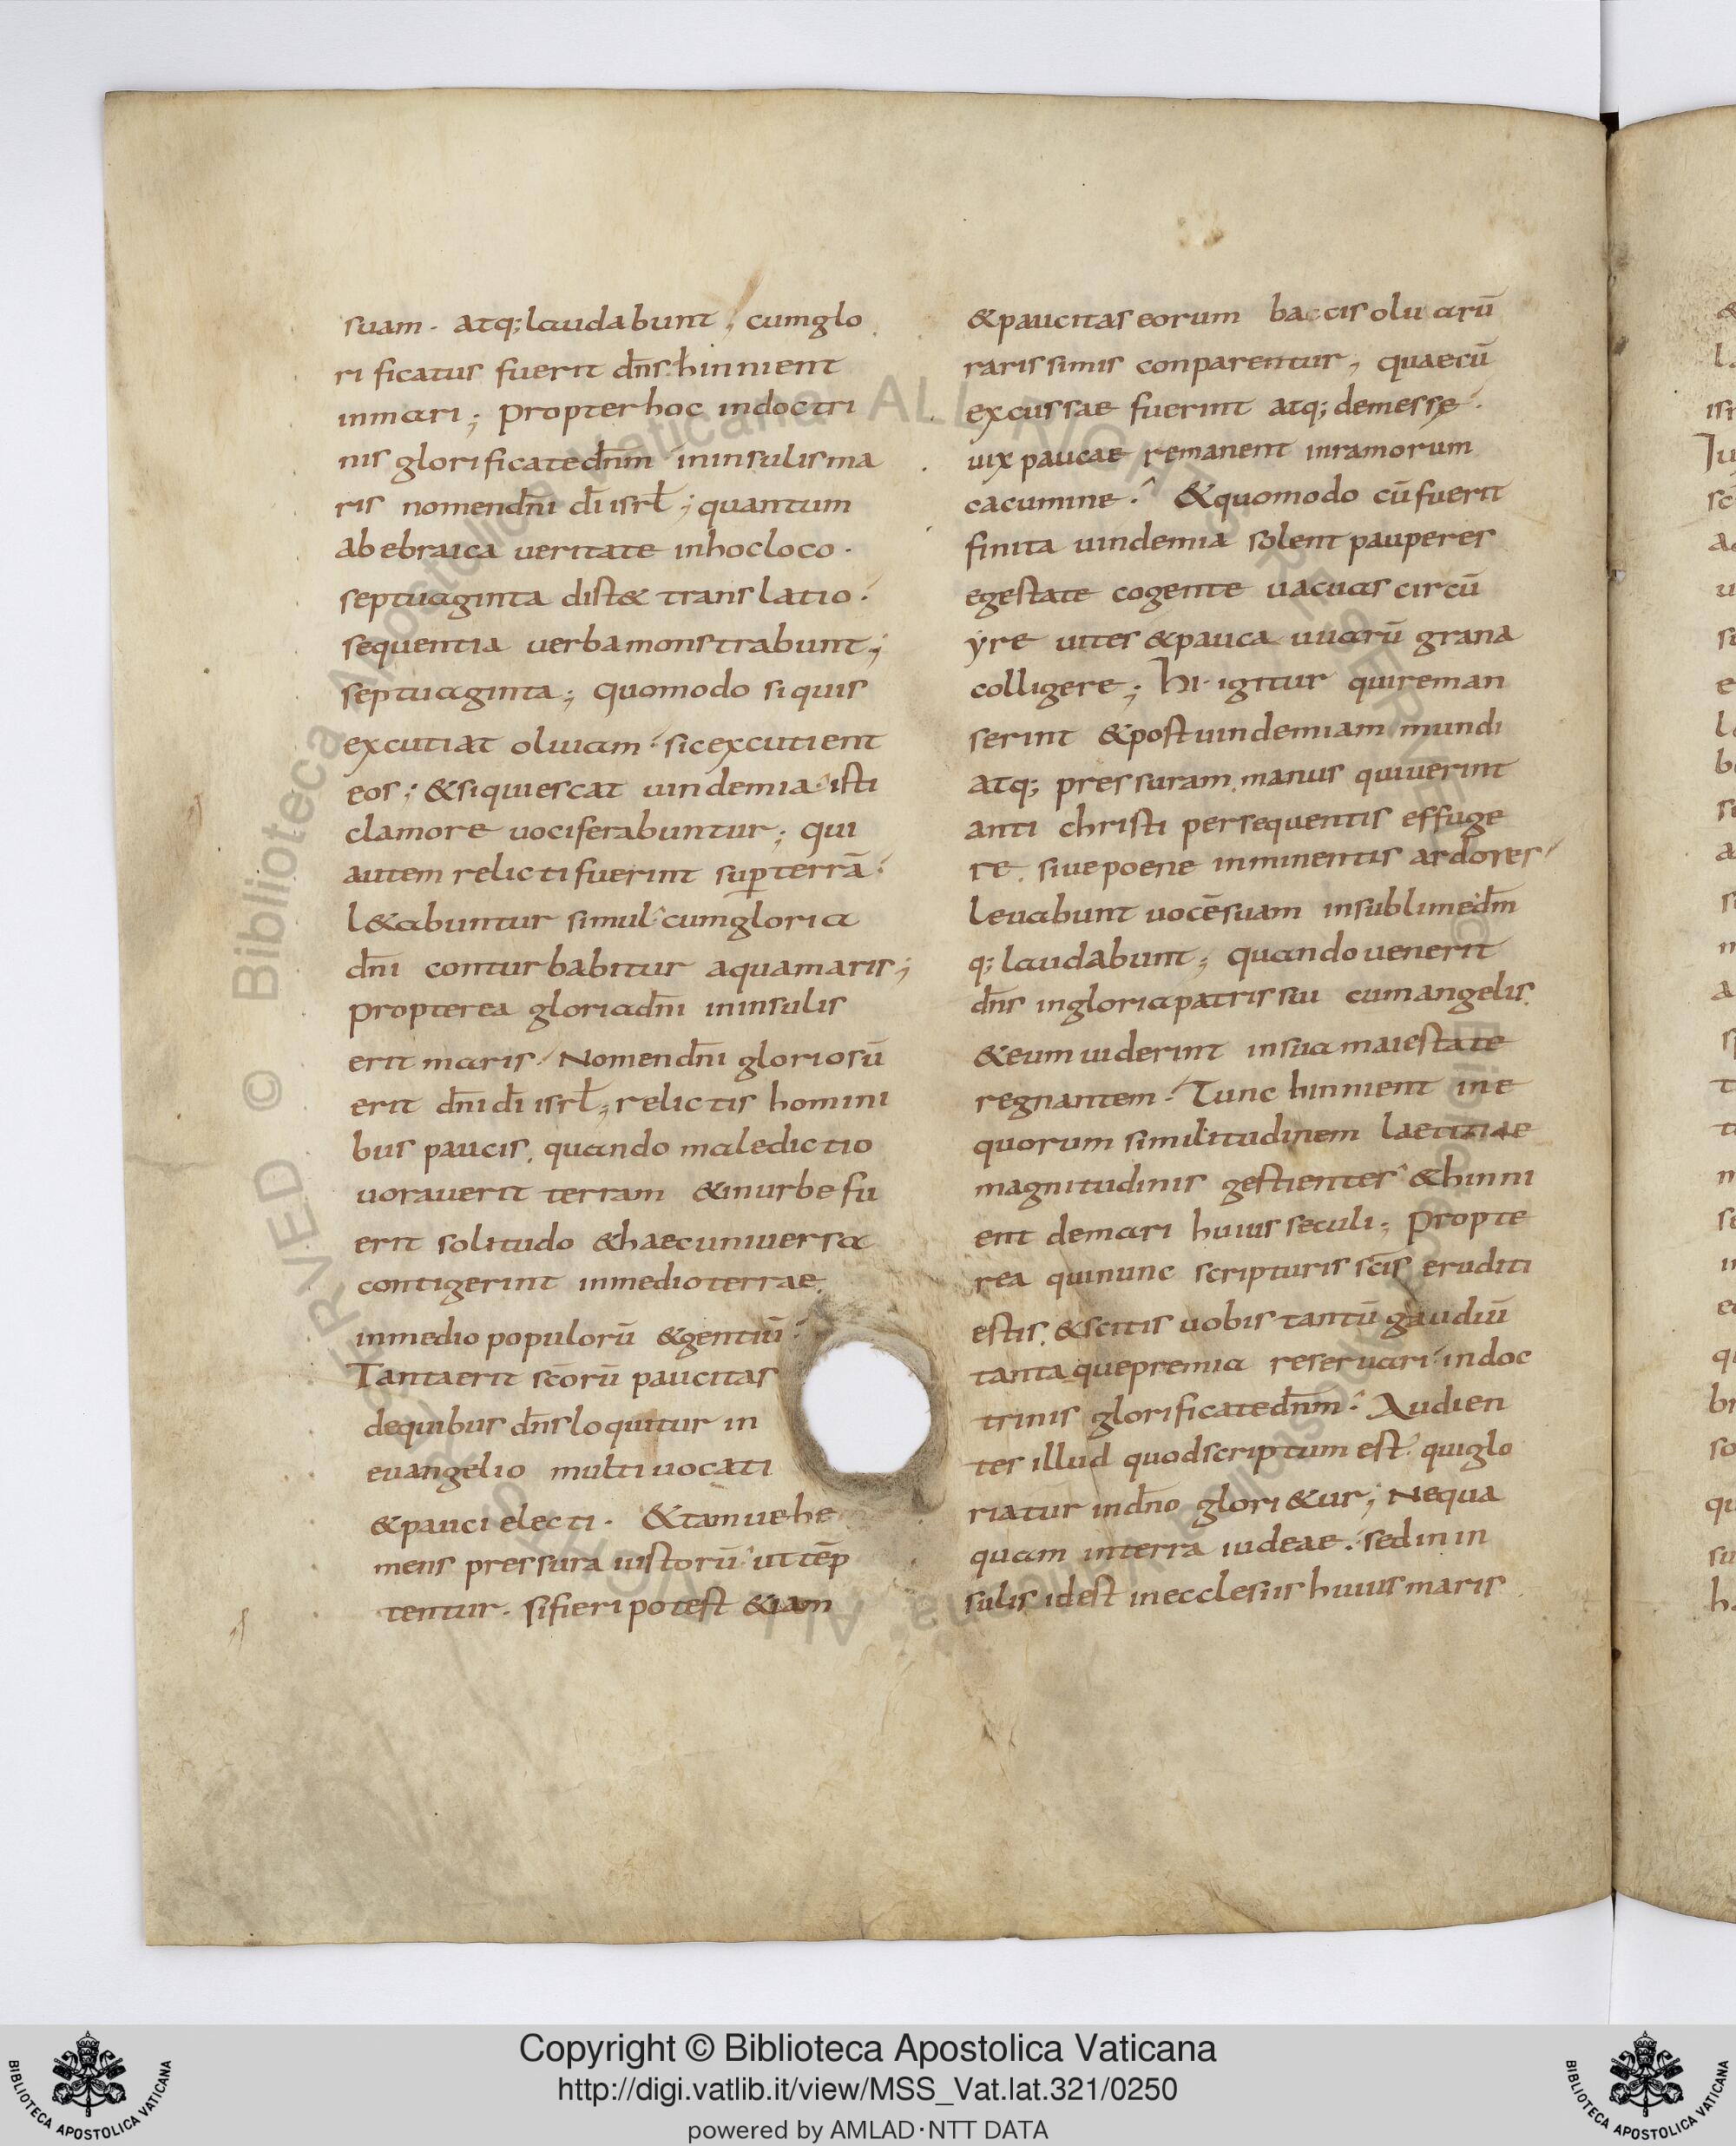 suam. atq; laudabunt, cumglo
rificatus fuerit dn̄s. hinnient
inmari; Propterhoc indoctri
nis glorificatedn̄m ininsulisma
ris nomendn̄i dī isrł; quantum
abebraica ueritate inhocloco.
septuaginta dist& translatio.
sequentia uerbamonstrabunt;
septuaginta; Quomodo siquis
excutiat oliuam. sicexcutient
eos; &siquiescat uindemia isti
clamore uociferabuntur; qui
autem relictifuerint sup̄terrā.
l&abuntur simul cumgloria
dn̄i conturbabitur aquamaris;
Propterea gloriadn̄i ininsulis
erit maris. Nomendn̄i gloriosū
erit dn̄i dī isrł; relictis homini
bus paucis, quando maledictio
uorauerit terram &inurbe fu
erit solitudo &haecuniuersa
contigerint inmedioterrae.
inmedio populorū &gentiū.
Tantaerit scōrū paucitas
dequibus dn̄sloquitur in
euangelio multi uocati
&pauci electi. &tamuehe
mens pressura iustorū ut tēp
tentur. sifieri potest &iam
&paucitas eorum baccis oliuarū
rarissimis conparentur, quaecū
excussae fuerint atq; demessę.
uix paucae remanent inramorum
cacumine. &quomodo cūfuerit
finita uindemia solent pauperes
egestate cogente uacuas circū
yre uites &pauca uuarū grana
colligere; Hi igitur quireman
serint &postuindemiam mundi
atq; pressuram manus quiuerint
anti christi persequentis effuge
re. siuepoene inminentis ardores
leuabunt uocēsuam insublimedm̄
q; laudabunt; Quando uenerit
dn̄s ingloriapatrissui cumangelis.
&eum uiderint insuamaiestate
regnantem. Tunc hinnient ine
quorum similitudinem laetitiae
magnitudinis gestientes &hinni
ent demari huius seculi; Propte
rea quinunc scripturis scīs eruditi
estis, &scitis uobis tantū gaudiū
tantaquepremia reseruari indoc
trinis glorificatedn̄m. Audien
ter illud quodscriptum est. quiglo
riatur indn̄o glori&ur; Nequa
quam interra iudeae. sedinin
sulis idest inecclesiis huiusmaris
Copyright © Biblioteca Apostolica Vaticana
http://digi.vatlib.it/view/MSS_Vat.lat.321/0250
powered by AMLAD·NTT DATA
BIBLIOTECA APOSTOLICA VATICANA
BIBLIOTECA APOSTOLICA VATICANA